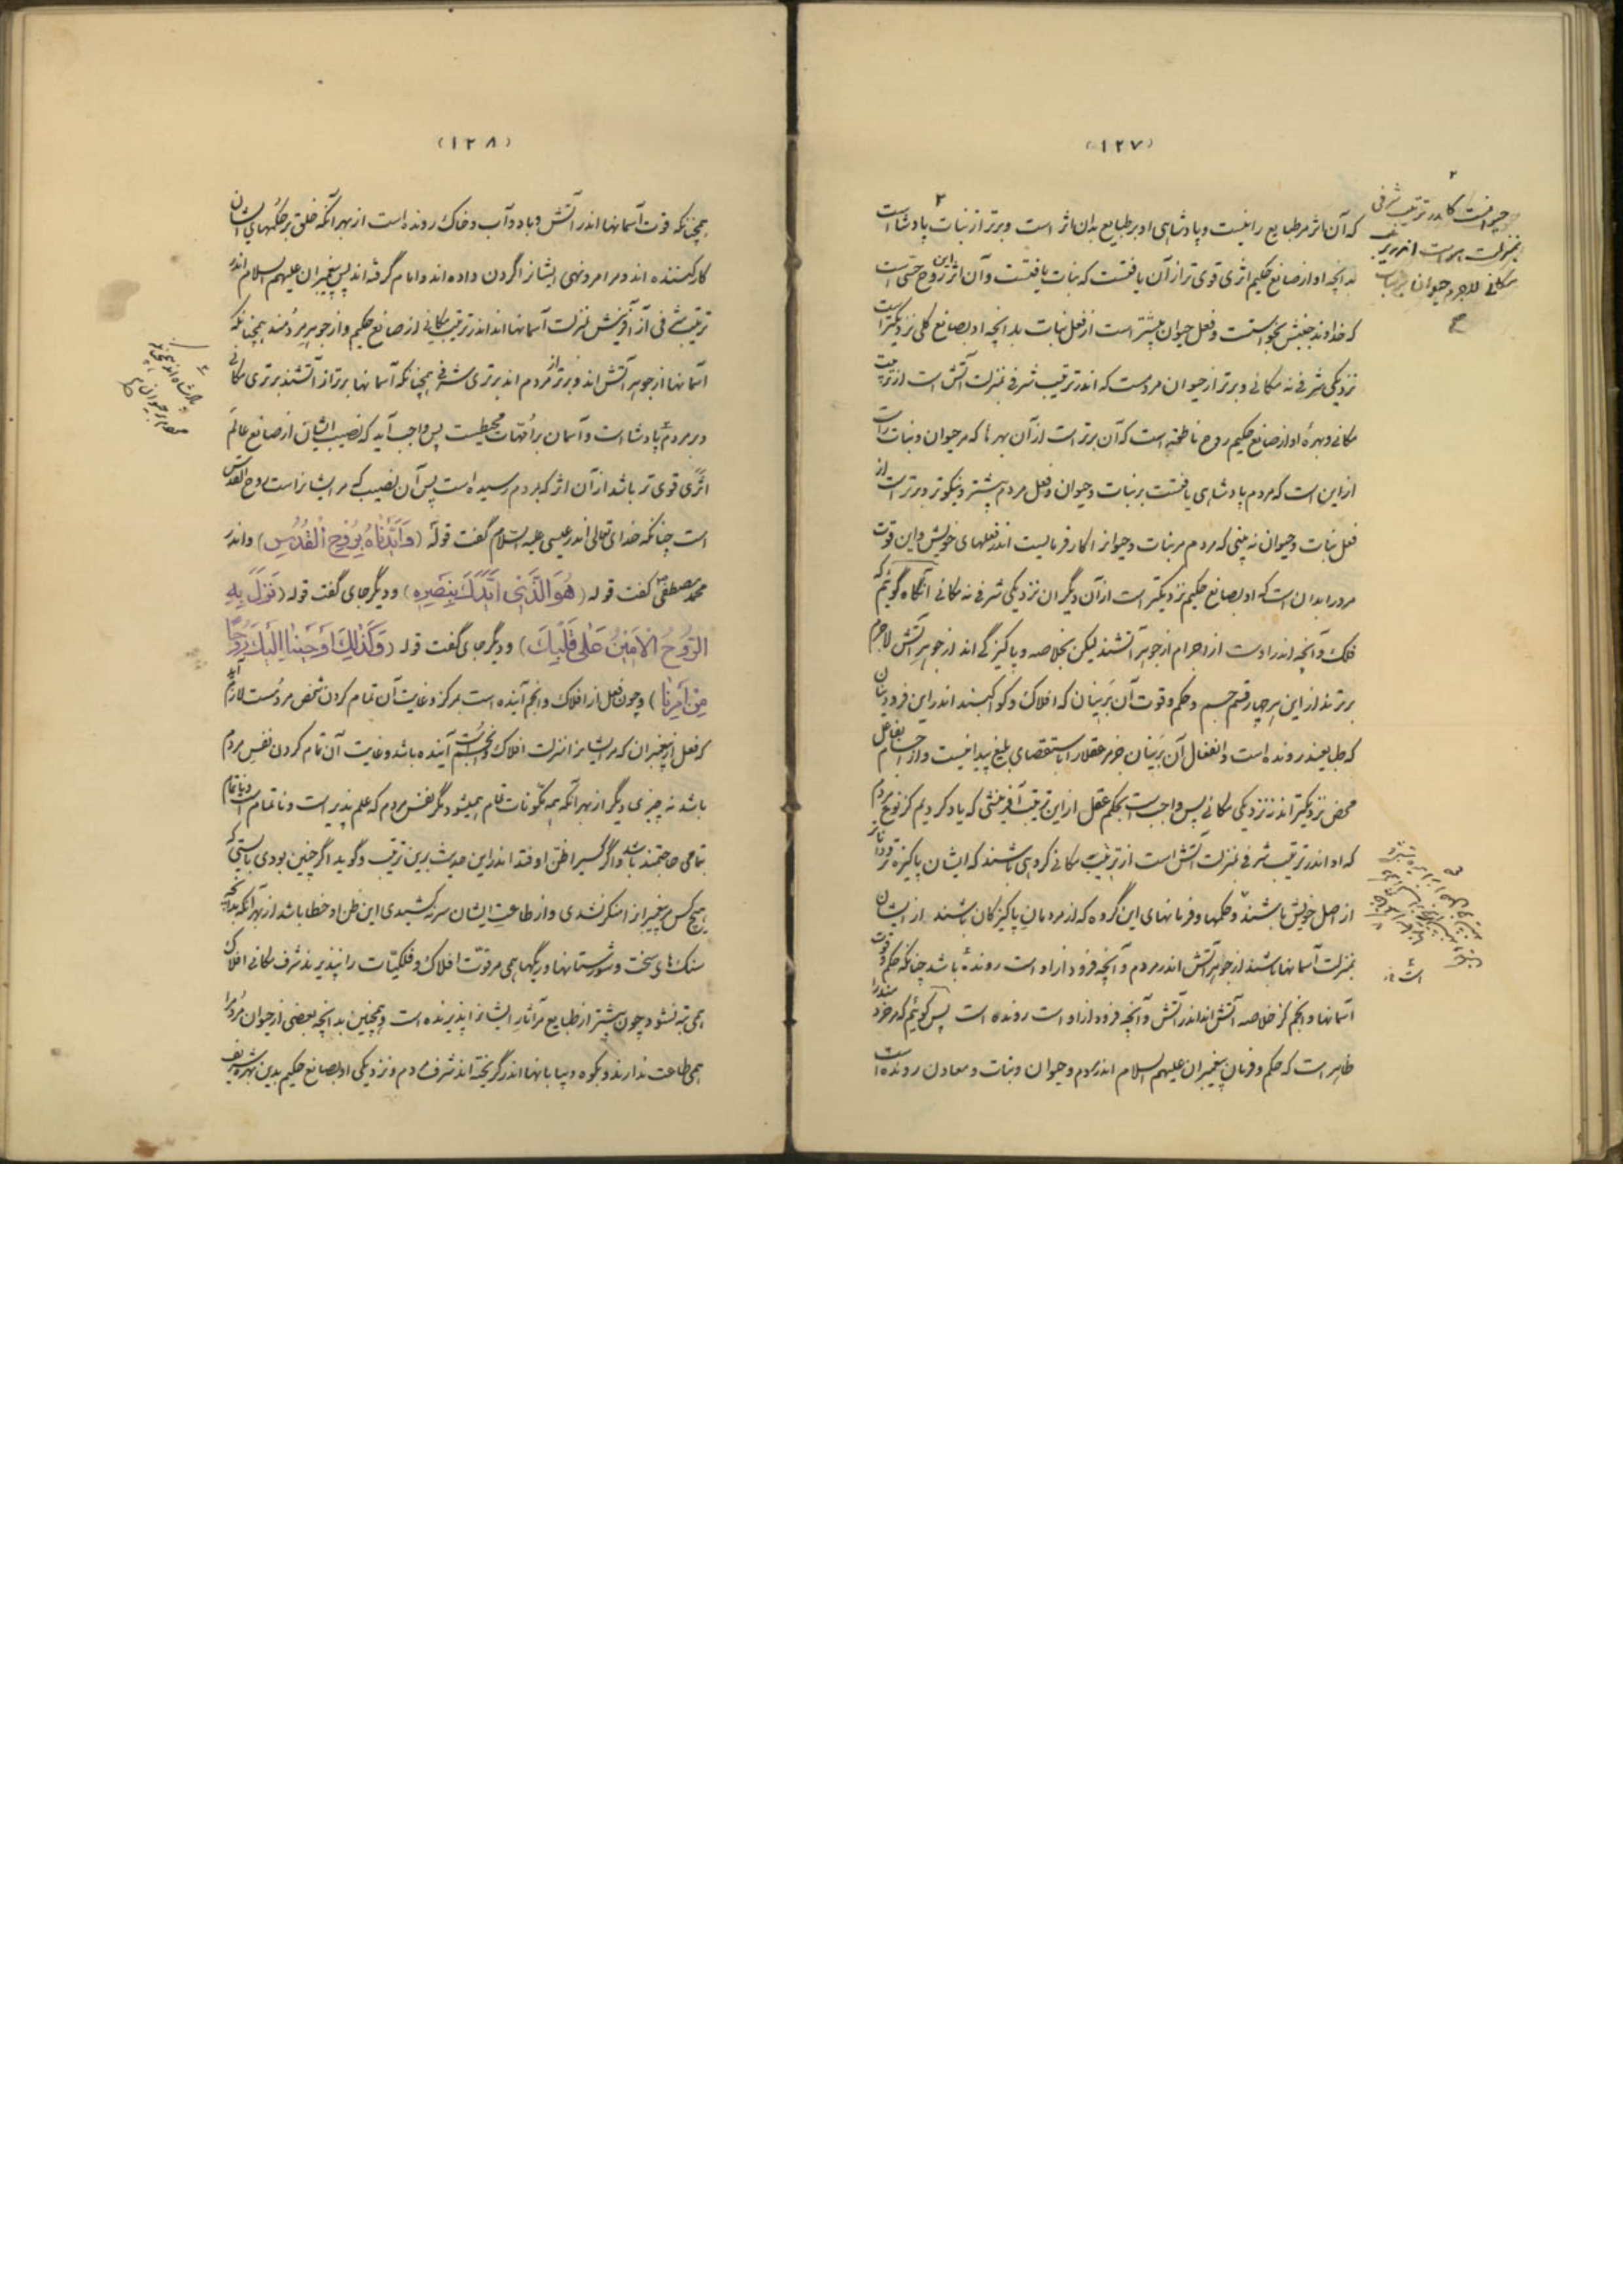 (۱۲۷)
که آن اثر مر طبایع را نیست و پادشاهی او بر طبایع بدان اثر است و برتر از نبات پادشا است
بدانچه او از صانع حکیم اثری قوی تر از آن یافتست که نبات یافتست و آن اثر روح حسی است
که خداوند جنبش بخواستست و فعل حیوان بیشتر است از فعل نبات بدانچه او بصانع کلی نزدیکتر است
نزدیکی شرفی نه مکانی و برتر از حیوان مردمست که اندر ترتیب شرفی بمنزلت آتش است از ترتیب
مکانی و بهرهٔ او از صانع حکیم روح ناطقه است که آن برتر است از آن بهرها که مر حیوان و نبات راست
از این است که مردم پادشاهی یافتست بر نبات و حیوان و فعل مردم بیشتر و نیکوتر و برتر است از
فعل نبات و حیوان نه بینی که مردم مر نبات و حیوانرا کارفرمایست اندر فعلهای خویش و این قوت
مرورا بدان است که او بصانع حکیم نزدیکتر است از آن دیگران نزدیکی شرفی نه مکانی آنگاه گوئیم که
فلک و آنچه اندر اوست از اجرام از جوهر آتشند لیکن بخلاصه و پاکیزگی اند از جوهر آتش لاجرم
برترند از این هر چهار قسم جسم و حکم و قوت آن برینان که افلاک و کواکبند اندر این فرودینان
که طبایعند رونده است و انفعال آن برینان جز مر عقلا را باستقصای بلیغ پیدا نیست و از اجسام بفاعل
محض نزدیکترند نزدیکی مکانی پس واجبست بحکم عقل از این ترتیب آفرینشی که یاد کردیم کز نوع مردم
که او اندر ترتیب شرفی بمنزلت آتش است از ترتیب مکانی گروهی باشند که ایشان پاکیزه تر
از اصل خویش باشند و حکمها و فرمانهای این گروه که از مردمان پاکیزگان باشند از ایشان
بمنزلت آسمانها باشند از جوهر آتش اندر مردم و آنچه فرود از او است رونده باشد چنانکه حکم و قوت
آسمانها و انجم کز خلاصه آتش اند اندر آتش و آنچه فرود از او است رونده است پس گوئیم که مر خردمند را
ظاهر است که حکم و فرمان پیغمبران علیهم السلام اندر مردم و حیوان و نبات و معادن رونده است
(۱۲۸)
همچنانکه قوت آسمانها اندر آتش و باد و آب و خاک رونده است از بهر آنکه خلق بر حکمهای ایشان
کار کننده اند و مر امر و نهی ایشانرا گردن داده اند و امام گرفته اند پس پیغمبران علیهم السلام اندر
ترتیب شرفی از آفرینش بمنزلت آسمانها اند اندر ترتیب مکانی از صانع حکیم و از جوهر مردمند همچنانکه
آسمانها از جوهر آتش اند و برتر از مردم اند برتری شرفی همچنانکه آسمانها برتر از آتشند برتری مکانی
و بر مردم پادشا است و آسمان بر امهات محیطست پس واجب آید که نصیب ایشان از صانع عالم
اثری قوی تر باشد از آن اثر که بمردم رسیده است پس آن نصیب که مر ایشانراست روح القدس
است چنانکه خدای تعالی اندر عیسی علیه السلام گفت قوله (وَاَیَّدْنَاهُ بِرُوحِ الْقُدُسِ) و اندر
محمد مصطفی گفت قوله (هُوَ الَّذِی اَیَّدَکَ بِنَصْرِهِ) و دیگر جای گفت قوله (نَزَلَ بِهِ
الرُّوحُ الْاَمِینُ عَلٰی قَلْبِکَ) و دیگر جای گفت قوله (وَکَذٰلِکَ اَوْحَیْنَا اِلَیْکَ رُوحًا
مِنْ اَمْرِنَا) و چون فعل از افلاک و انجم آینده است بمرکز و غایت آن تمام کردن شخص مردمست لازم آید
که فعل از پیغمبران که مر ایشانرا منزلت افلاک و انجم است آینده باشد و غایت آن تمام کردن نفس مردم
باشد نه چیزی دیگر از بهر آنکه همه مکونات تمام همیشود مگر نفس مردم که علم پذیر است و ناتمام است و ناتمام
بتمامی حاجتمند باشد و اگر کسیرا ظن اوفتد اندر این حدیث برین ترتیب و گوید اگر چنین بودی بایستی که
هیچ کس پیغمبرانرا منکر نشدی و از طاعت ایشان سر نکشیدی این ظن او خطا باشد از بهر آنکه بدانچه
سنگهای سخت و شورستانها و ریگها همی مر قوت افلاک و فلکیات را نپذیرند شرف مکانی افلاک
همی تبه نشود چون بیشتر از طبایع مر آثار ایشانرا پذیرنده است و همچنین بدانچه بعضی از حیوان مردم را
همی طاعت ندارند و بکوه و بیابانها اندر گریخته اند شرف مردم و نزدیکی او بصانع حکیم بدین بهره شریف